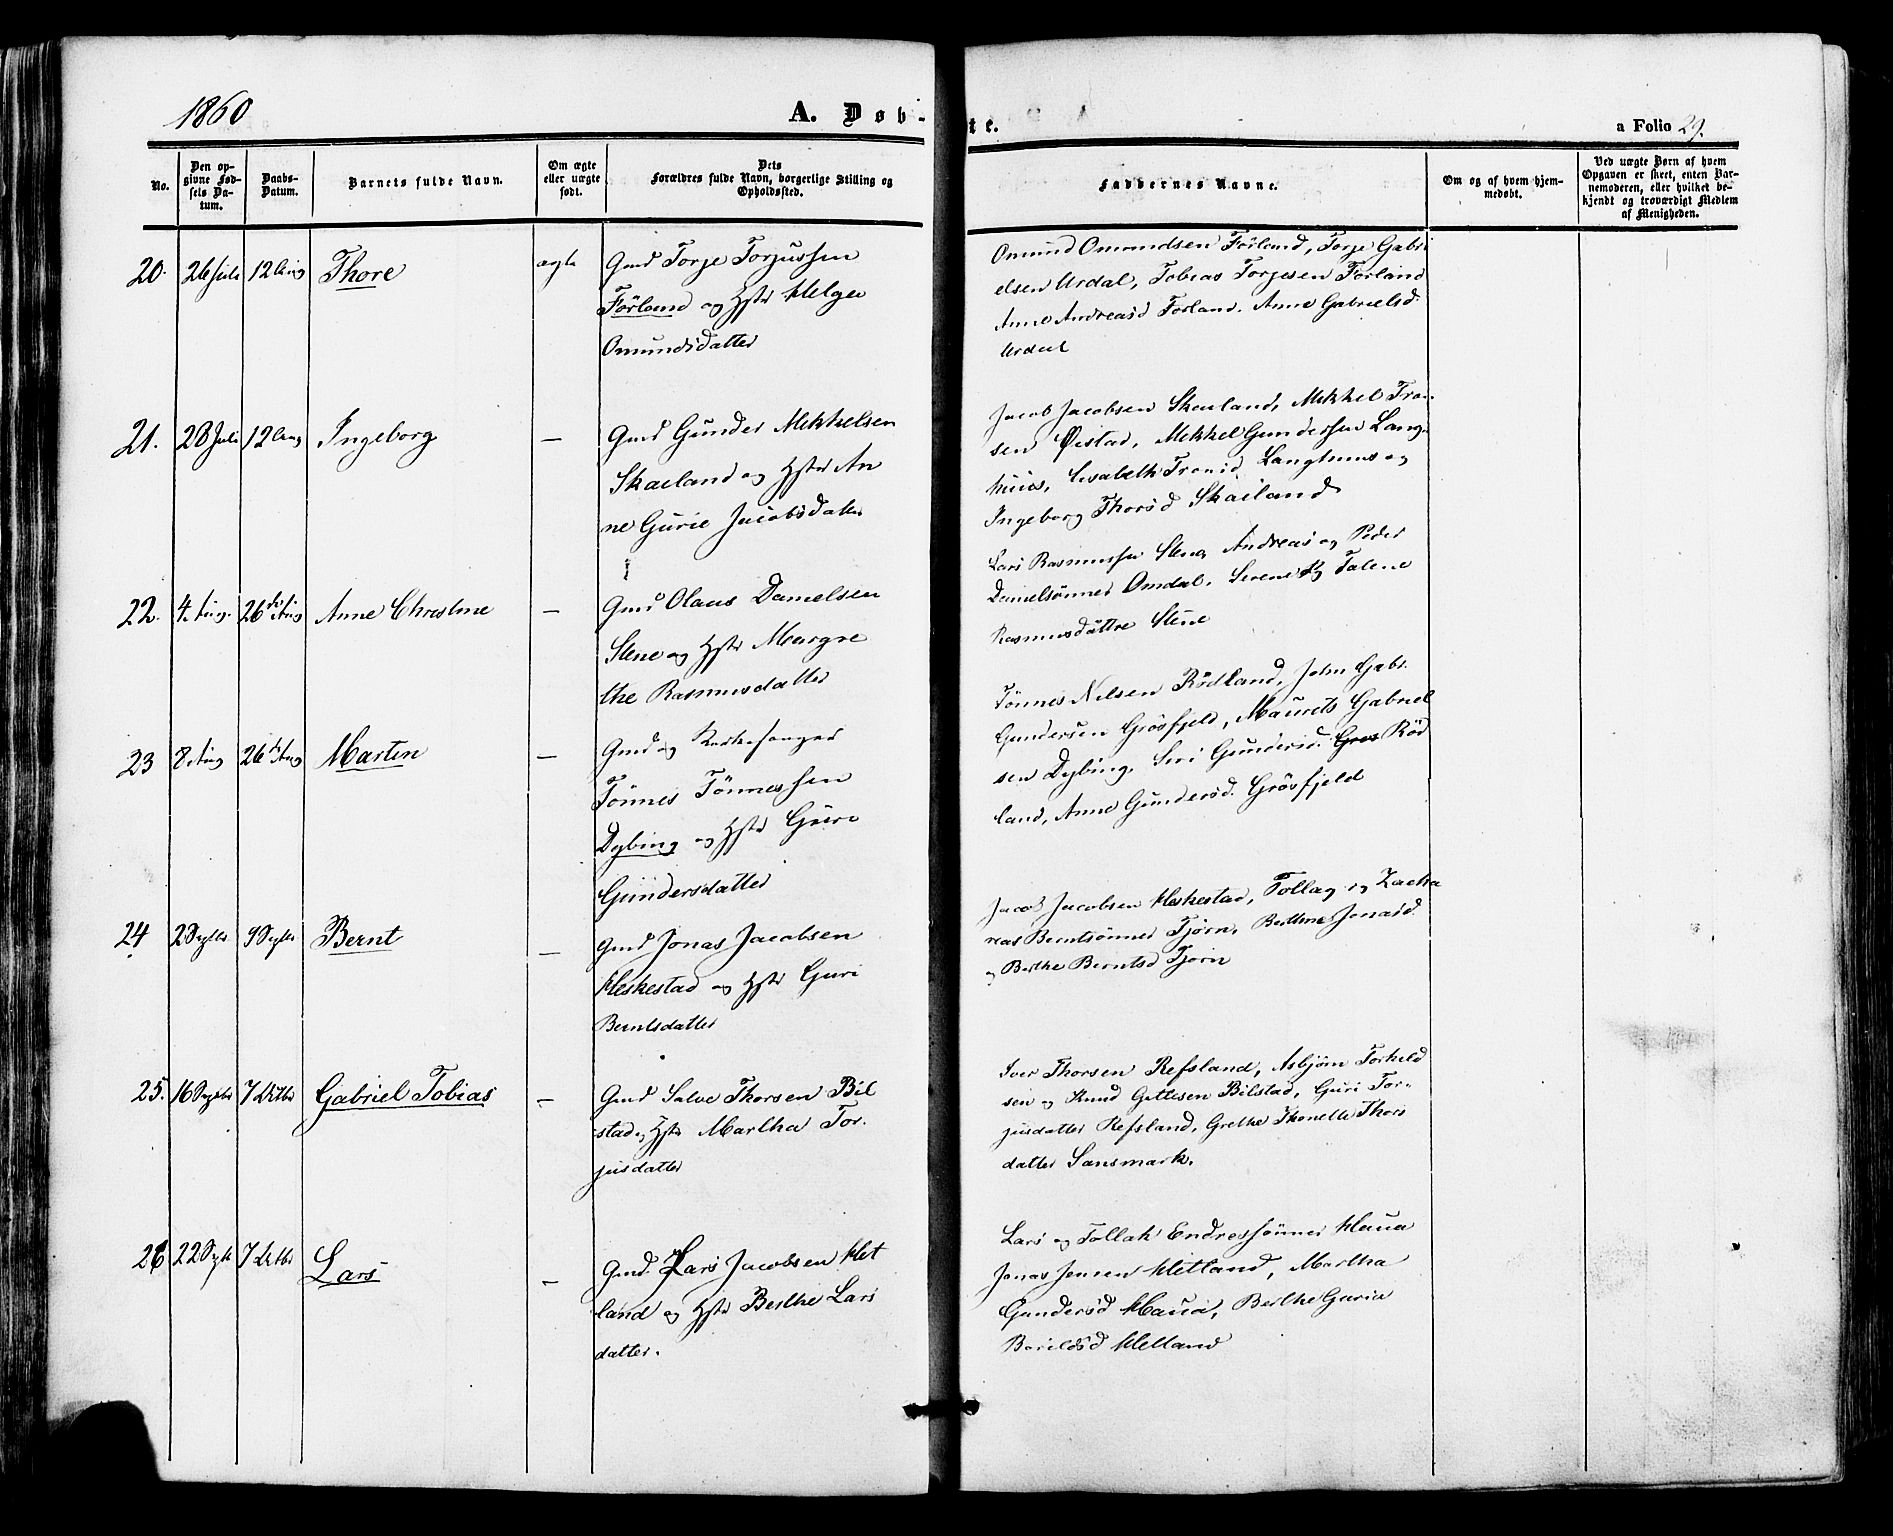 1860
A. Døb-
te.
a Folio 29.
No.
Den op-
givne Fød-
sels Da-
tum.
Daabs-
Datum.
Barnets fulde Navn.
Om ægte
eller uægte
født.
Dets
Forældres fulde Navn, borgerlige Stilling og
Opholdssted.
Faddernes Navne.
Om og af hvem hjem-
medøbt.
Ved uægte Børn af hvem
Opgaven er skeet, enten Bar-
nemoderen, eller hvilket be-
kjendt og troværdigt Medlem
af Menigheden.
20. 26 Juli 12 Aug Thore ægte
Gmd Torje Torjussen
Förland og Hstr Helga
Omundsdatter
Omund Omundsen Förland, Torje Gabri
elsen Urdal, Tobias Torjesen Förland
Anne Andreasd Forland. Anne Gabrielsd.
Urdal
21. 28 Juli 12 Aug Ingeborg —
Gmd Gunder Mikkelsen
Skaeland og Hstr An
ne Gurie Jacobsdater
Jacob Jacobsen Skaeland, Mikkel Tron-
sen Øistad, Mekkel Gundersen Lang-
huus, Lisabeth Tronsd. Langhuus og
Ingeborg Thorsd Skaeland
22. 4 Aug. 26de Aug Anne Christine —
Gmd Olaus Danielsen
Stene og Hstr Margre
the Rasmusdatter
Lars Rasmussen Stene, Andreas og Peder
Danielsönner Omdal. Serene og Talene
Rasmusdöttre Stene
23 8 Aug 26de Aug Martin —
Gmd og Kirkesanger
Tönnes Tönnessen
Dybing og Hstr Guri
Gundersdatter
Tönnes Nilsen Rödland, John Gabr.
Gundersen Grösfjeld, Maurits Gabriel
sen Dybing, Siri Gundersd. Gros Röd
land, Anne Gundersd. Grösfjeld
24 2 Septbr 9 Septbr Bernt —
Gmd Jonas Jacobsen
Heskestad og Hstr Guri
Berntsdatter
Jacob Jacobsen Heskestad, Tollag og Zacha
rias Berntsönner Tjørn, Berthine Jonasd.
og Berthe Berntsd Tjørn
25. 16 Septbr 7 Octbr Gabriel Tobias —
Gmd Salve Thorsen Bil
stad og Hstr Martha Tor-
jusdatter
Iver Thorsen Refsland, Asbjörn Torkild
sen og Knud Gottesen Bilstad, Guri Tor-
jusdatter Refsland, Grethe Thonette Thors
datter Sansmark.
26 22 Septb 7 Octbr Lars —
Gmd. Lars Jacobsen Het
land og Hstr Berthe Lars
datter.
Lars og Tollak Endressönner Haua
Jonas Jensen Hetland, Martha
Gundersd Haua, Berthe Guria
Barildsd Hetland